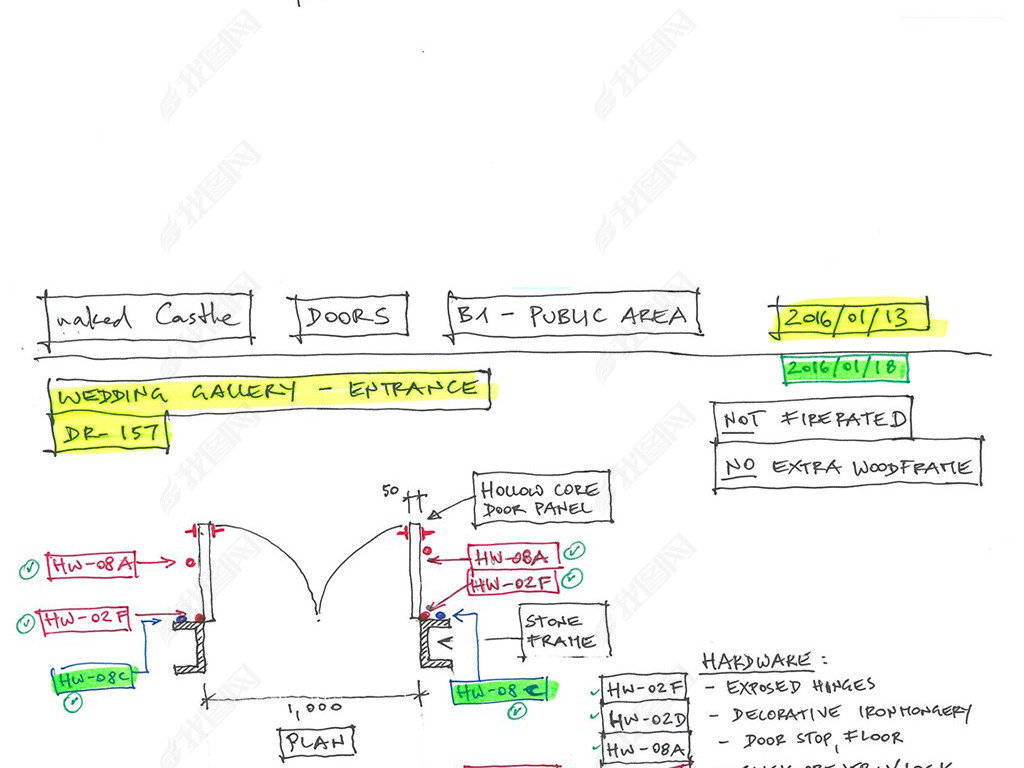 naked Castle
DOORS
B1 - PUBLIC AREA
2016/01/13
2016/01/18
WEDDING GALLERY - ENTRANCE
DR-157
NOT FIRERATED
NO EXTRA WOODFRAME
50
HOLLOW CORE
DOOR PANEL
HW-08A
HW-08A
HW-02F
HW-02F
STONE
FRAME
HW-08C
HW-08C
1,000
PLAN
HARDWARE:
HW-02F - EXPOSED HINGES
HW-02D - DECORATIVE IRONMONGERY
HW-08A - DOOR STOP, FLOOR
我图网
我图网
我图网
我图网
我图网
我图网
我图网
我图网
我图网
我图网
我图网
我图网